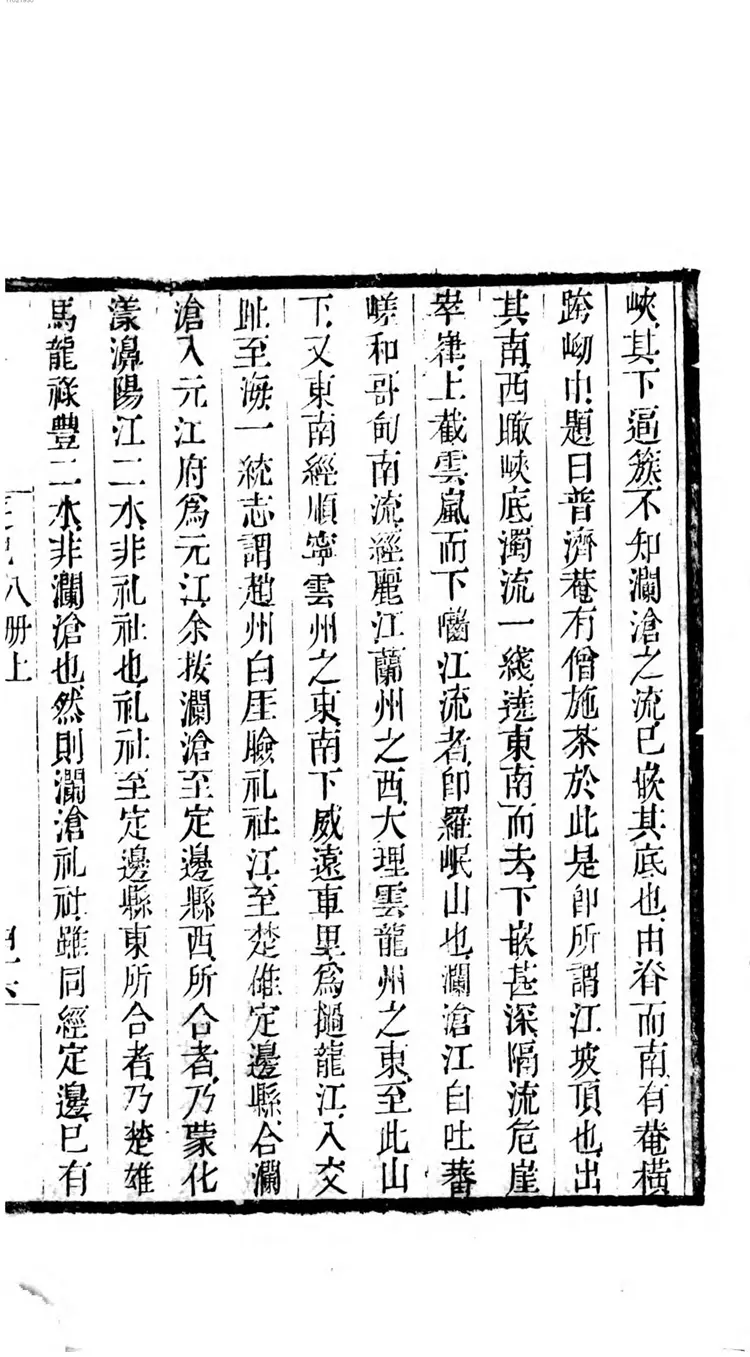 峽其下逼簇不知瀾滄之流已嵌其底也由脊而南有菴橫
跨坳中題曰普濟菴有僧施茶於此是卽所謂江坡頂也出
其南西瞰峽底濁流一綫遶東南而去下嵌甚深隔流危崖
崒嵂上截雲嵐而下嚙江流者卽羅岷山也瀾滄江自吐蕃
嵯和哥甸南流經麗江蘭州之西大理雲龍州之東至此山
下又東南經順寧雲州之東南下威遠車里爲撾龍江入交
趾至海一統志謂趙州白厓瞼礼社江至楚雄定邊縣合瀾
滄入元江府爲元江余按瀾滄至定邊縣西所合者乃蒙化
漾濞陽江二水非礼社也礼社至定邊縣東所合者乃楚雄
馬龍祿豐二水非瀾滄也然則瀾滄礼社雖同經定邊已有
八册上